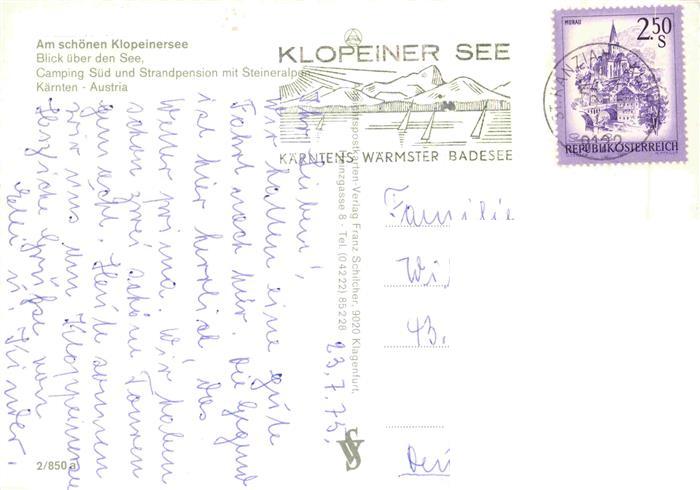 Am schönen Klopeinersee
Blick über den See,
Camping Süd und Strandpension mit Steineralpen
Kärnten - Austria
KLOPEINER SEE
KÄRNTENS WÄRMSTER BADESEE
MURAU
2.50
S
REPUBLIK ÖSTERREICH
ST. KANZIAN
Ihr Lieben!
Wir hatten eine gute
Fahrt nach hier. Die Gegend
ist hier herrlich das
Wetter prima. Wir haben
schon zwei schöne Touren
gemacht. Heute sonnen
wir uns am Klopeinersee
Herzliche Grüße von
u. Kinder.
23.7.75.
Ansichtspostkarten-Verlag Franz Schilcher, 9020 Klagenfurt,
Heinzgasse 8 - Tel. (04222) 85228
Familie
Wi
43.
Deu
2/850 a